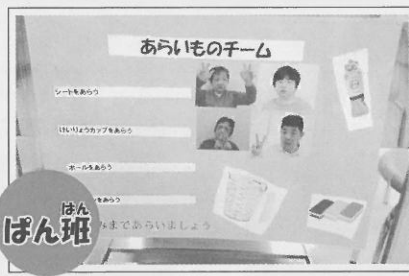 あらいものチーム
シートをあらう
けいりょうカップをあらう
ボールをあらう
をあらう
みまであらいましょう
はん
ぱん班